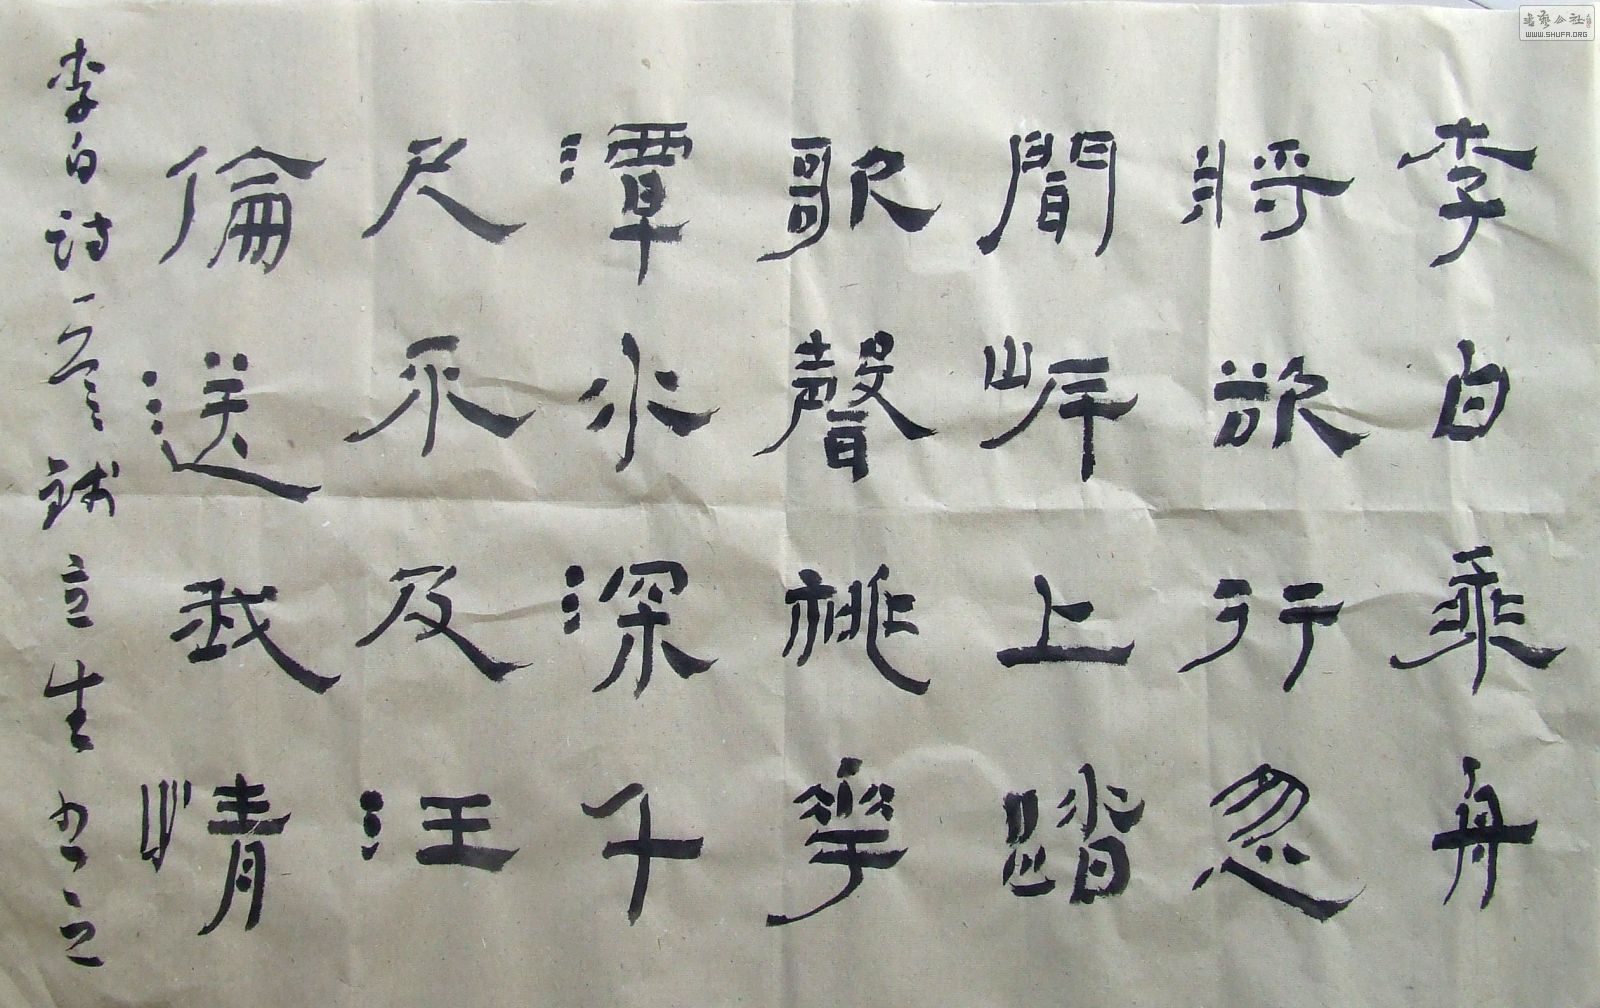 李白乘舟
將欲行忽
聞岸上踏
歌聲桃花
潭水深千
尺不及汪
倫送我情
李白詩一首 立生書
書藝公社
WWW.SHUFA.ORG